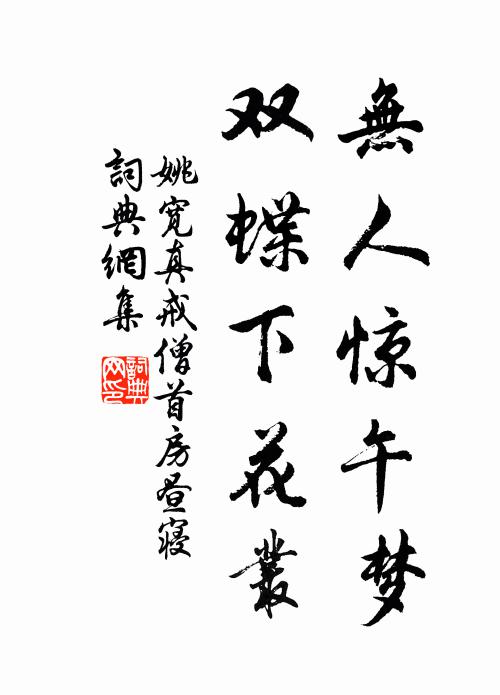 無人惊午梦
双蝶下花叢
姚寛真戒僧首房昼寝
詞典網集
詞典网印